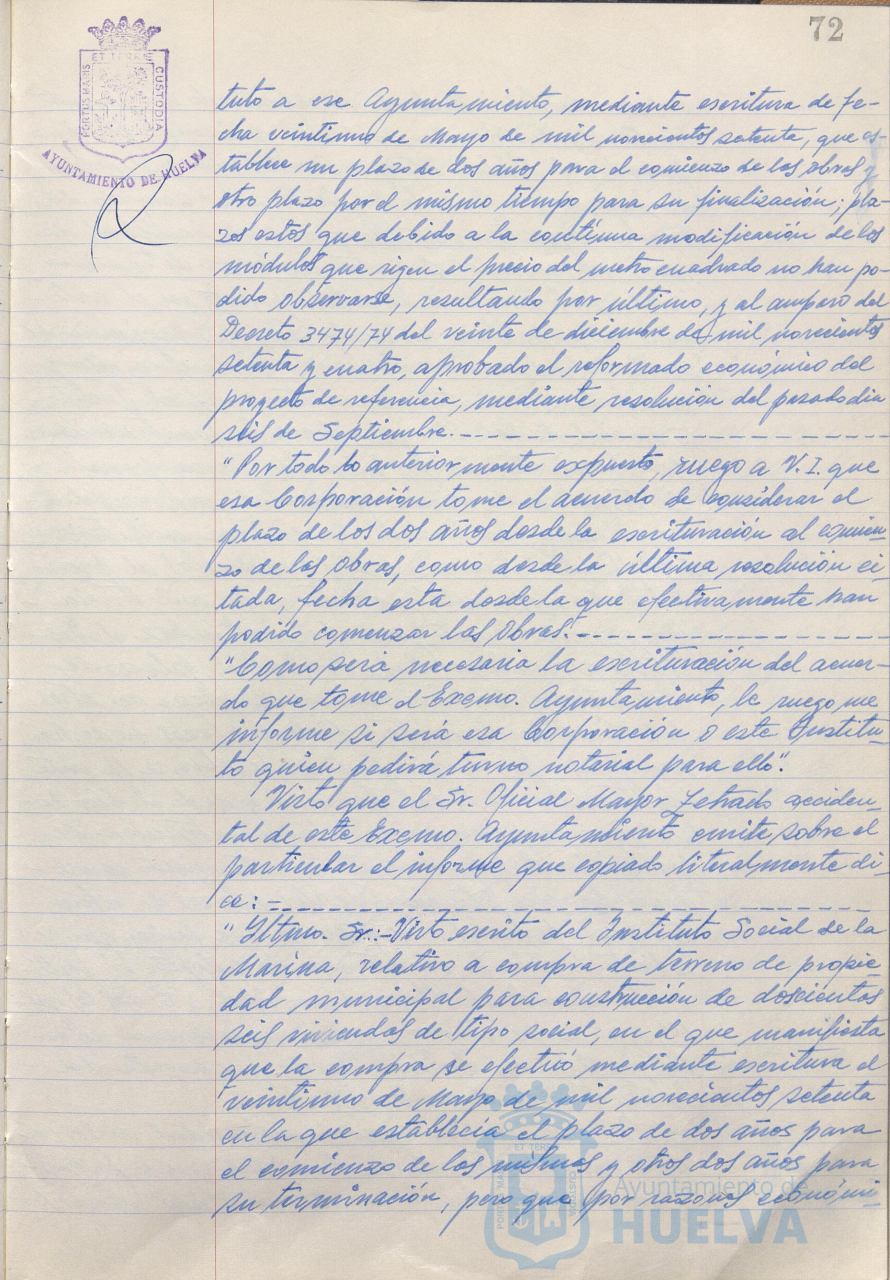 72
PORTUS MARIS ET TERRAE CUSTODIA
AYUNTAMIENTO DE HUELVA
tuto a ese Ayuntamiento, mediante escritura de fe-
cha veintiuno de Mayo de mil novecientos setenta, que es-
tablece un plazo de dos años para el comienzo de las obras y
otro plazo por el mismo tiempo para su finalización; pla-
zos estos que debido a la contínua modificación de los
módulos que rigen el precio del metro cuadrado no han po-
dido observarse, resultando por último, y al amparo del
Decreto 3474/74 del veinte de diciembre de mil novecientos
setenta y cuatro, aprobado el reformado económico del
proyecto de referencia, mediante resolución del pasado día
seis de Septiembre.
"Por todo lo anteriormente expuesto, ruego a V.I. que
esa Corporación tome el acuerdo de considerar el
plazo de los dos años desde la escrituración al comien-
zo de las obras, como desde la última resolución ci-
tada, fecha esta desde la que efectivamente han
podido comenzar las obras.
"Como será necesaria la escrituración del acuer-
do que tome el Excmo. Ayuntamiento, le ruego me
informe si será esa Corporación o este Institu-
to quien pedirá turno notarial para ello".
Visto que el Sr. Oficial Mayor Letrado acciden-
tal de este Excmo. Ayuntamiento emite sobre el
particular el informe que copiado literalmente di-
ce:
"Iltmo. Sr.:-Visto escrito del Instituto Social de la
Marina, relativo a compra de terreno de propie-
dad municipal para construcción de doscientas
seis viviendas de tipo social, en el que manifiesta
que la compra se efectuó mediante escritura el
veintiuno de Mayo de mil novecientos setenta
en la que establecía el plazo de dos años para
el comienzo de las mismas y otros dos años para
su terminación, pero que por razones económi-
Ayuntamiento de
HUELVA